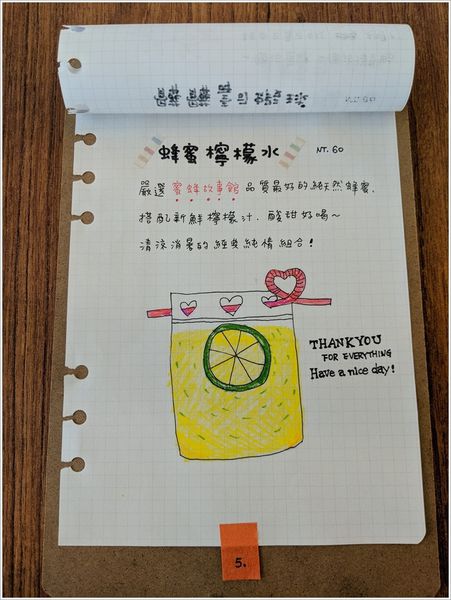 蜂蜜檸檬水 NT. 60
嚴選 蜜蜂故事館 品質最好的純天然蜂蜜、
搭配新鮮檸檬汁．酸甜好喝～
清涼消暑的經典純情組合！
THANK YOU
FOR EVERYTHING
Have a nice day!
5.